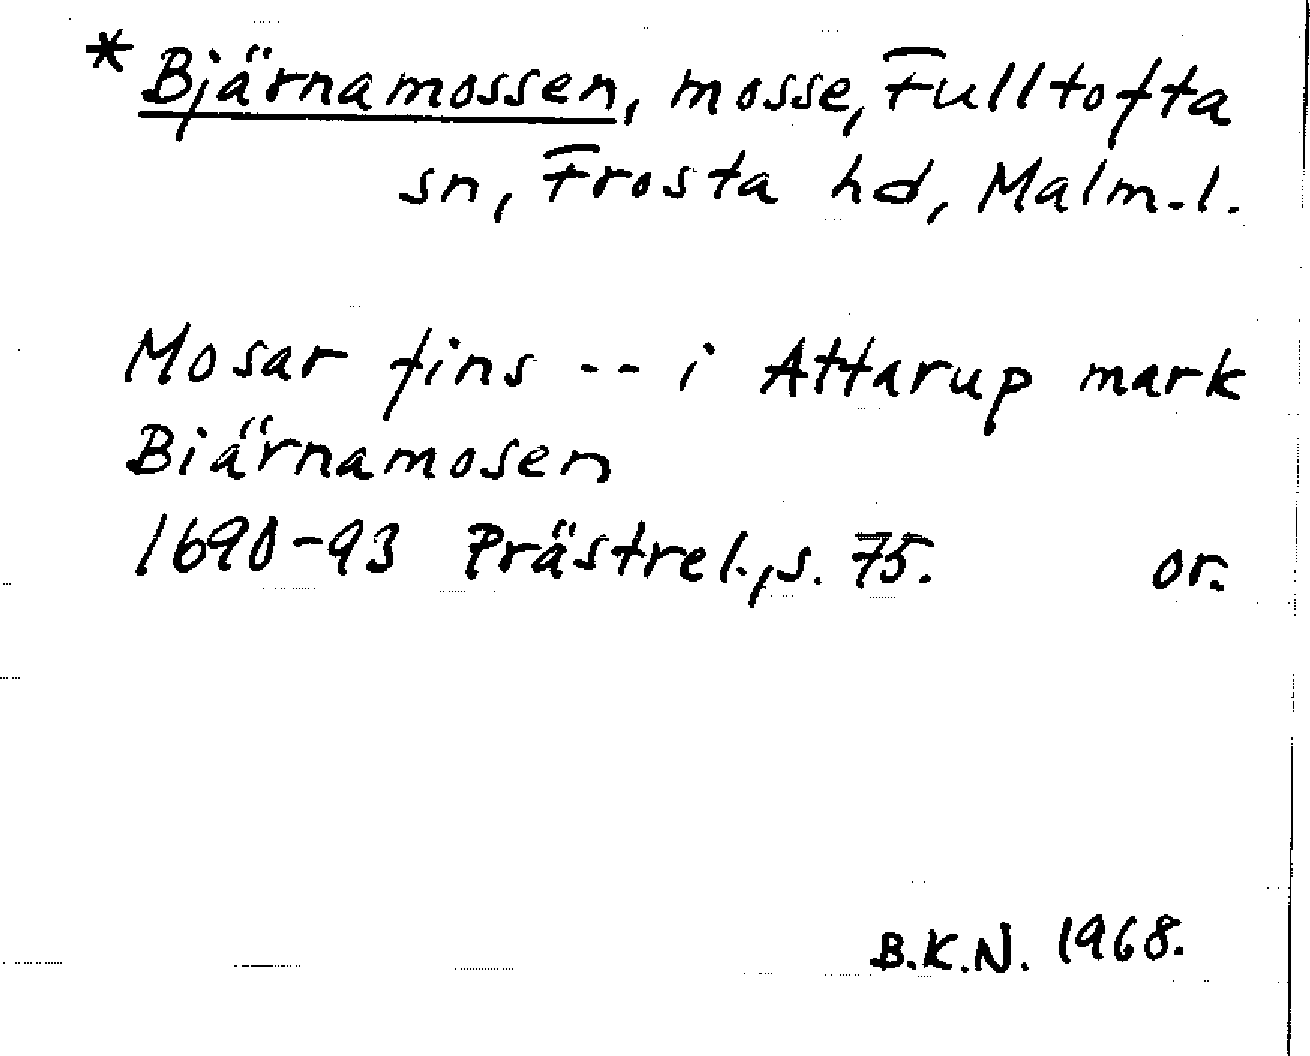 * Bjärnamossen, mosse, Fulltofta
sn, Frosta hd, Malm.l.
Mosar fins -- i Attarup mark
Biärnamosen
1690-93 Prästrel., s. 75. or.
B.K.N. 1968.